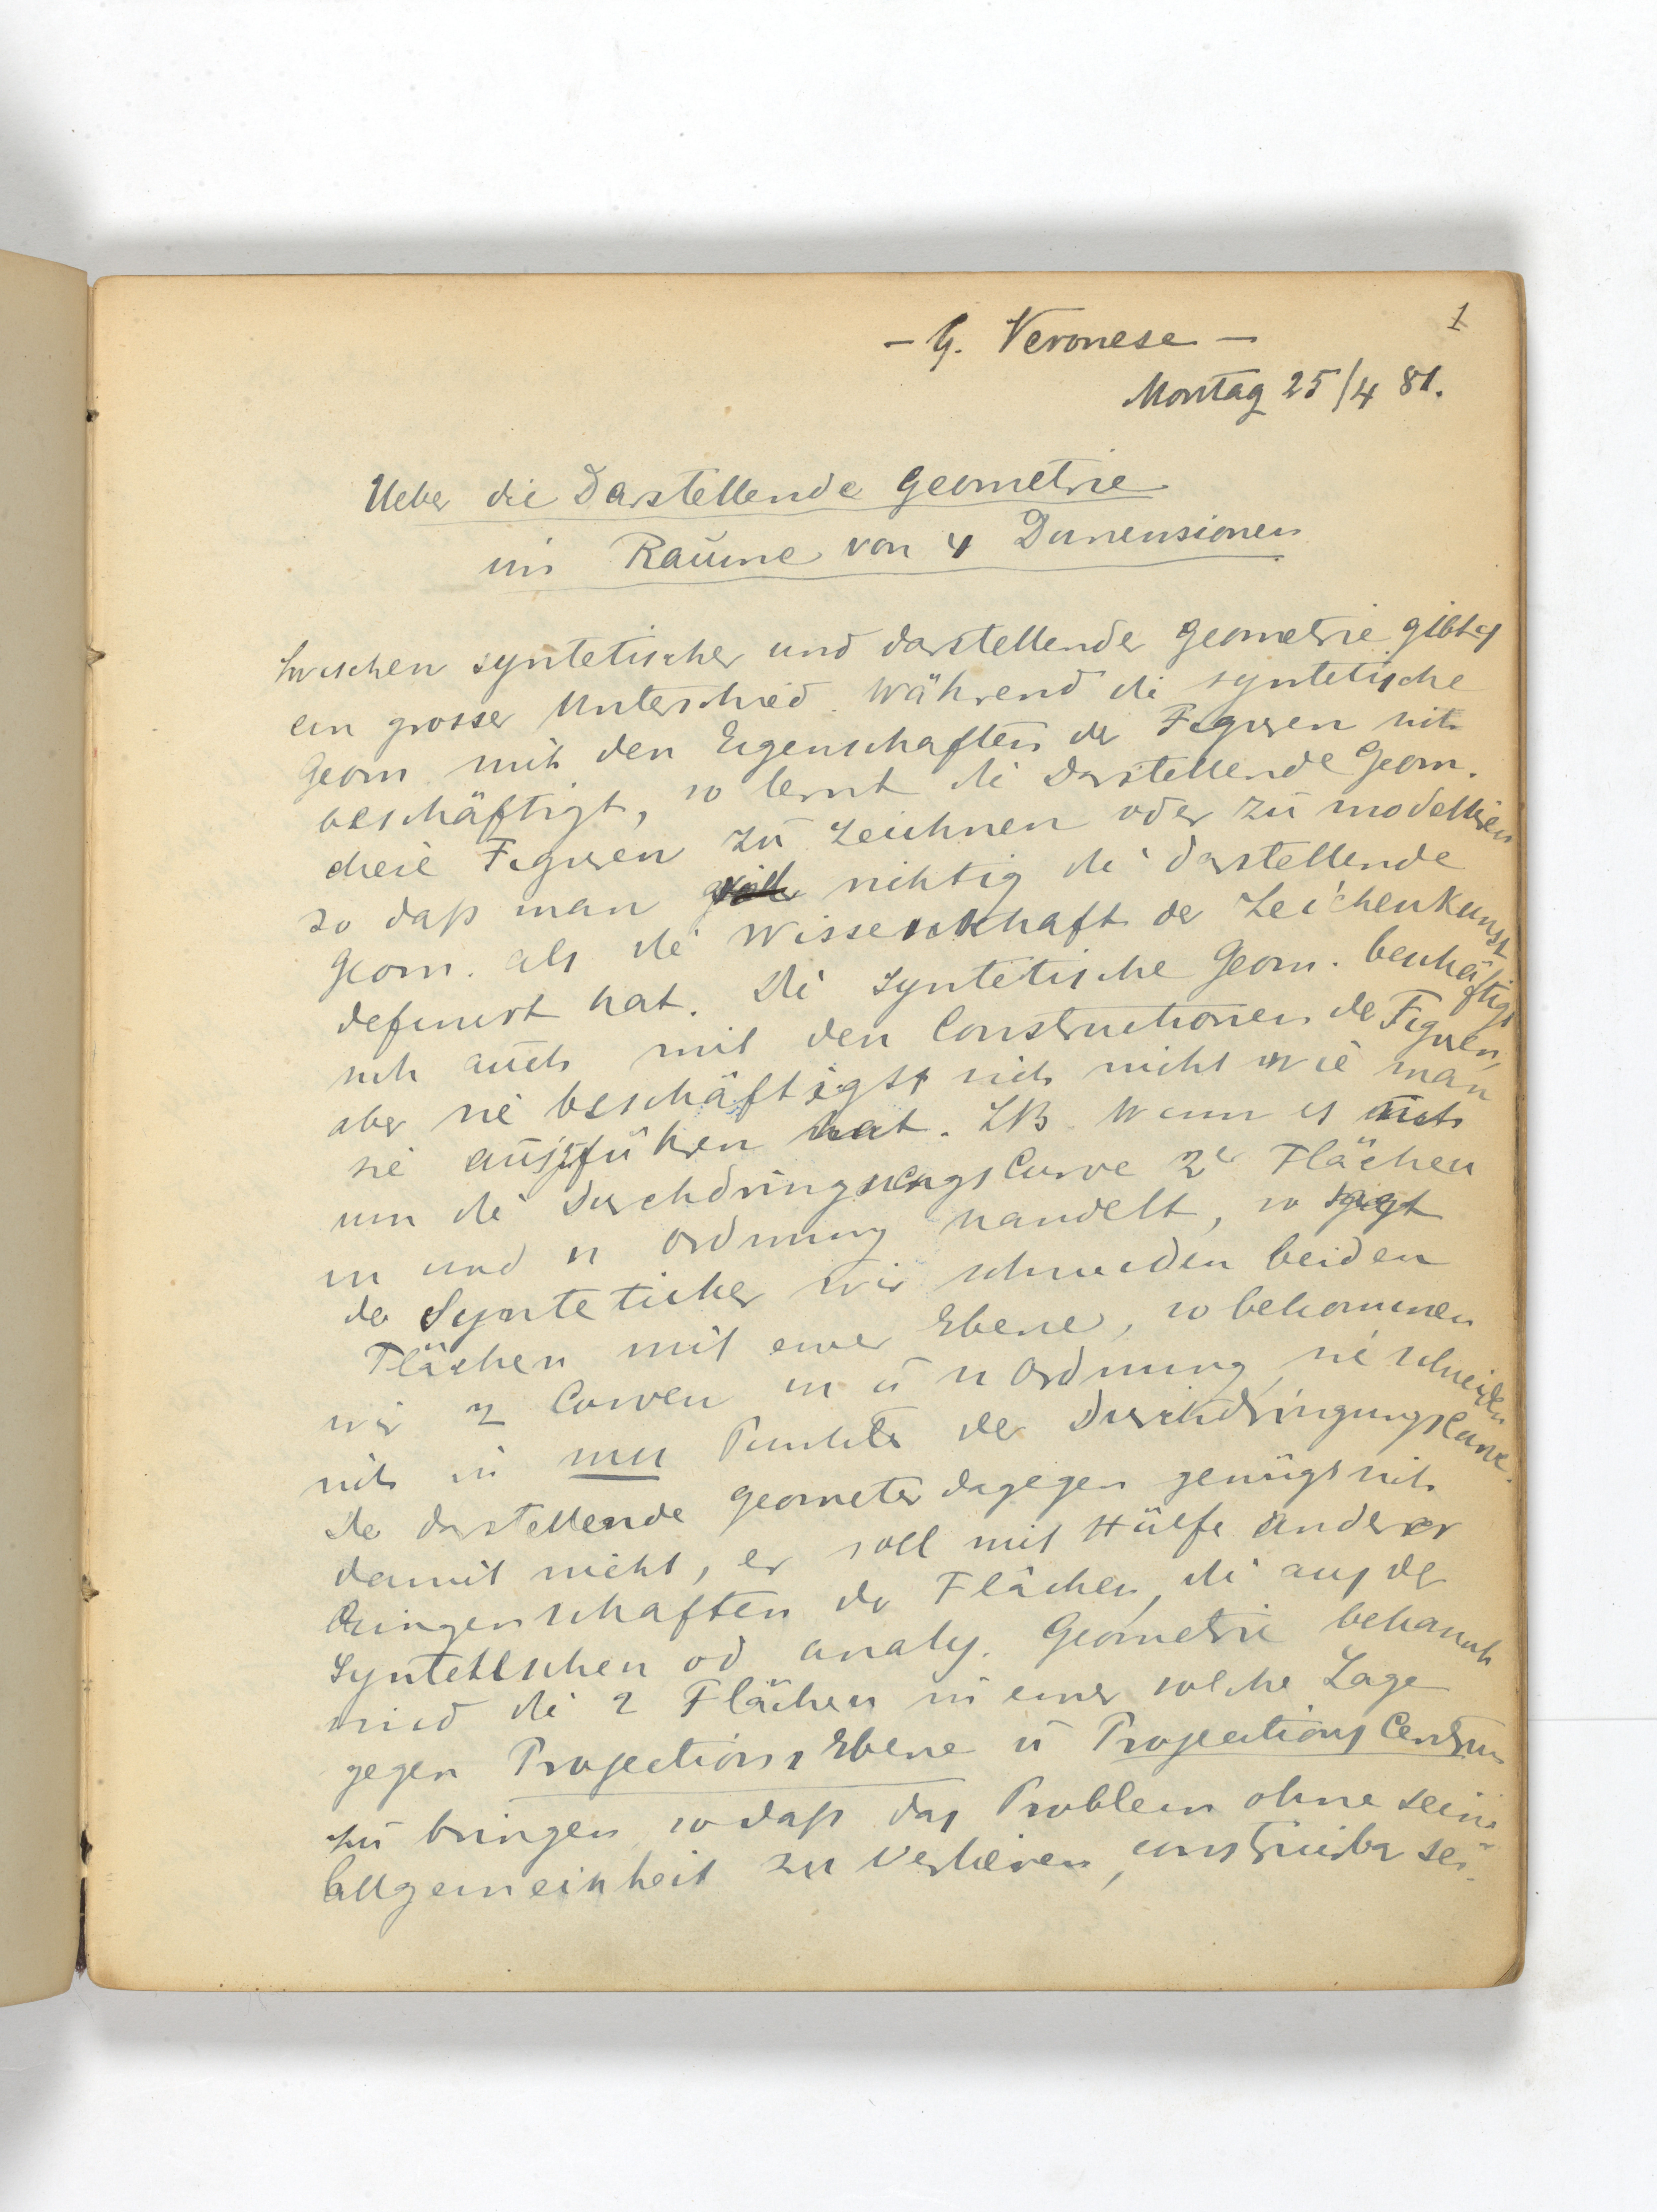 1
– G. Veronese –
Montag 25/4 81.
Ueber die Darstellende Geometrie
im Raume von 4 Dimensionen
Zwischen syntetischer und darstellender Geometrie gibt es
ein grosser Unterschied. Während die syntetische
Geom mit den Eigenschaften der Figuren sich
beschäftigt, so lernt die Darstellende Geom.
diese Figuren zu zeichnen oder zu modelliren
so daß man richtig die darstellende
Geom. als die Wissenschaft der Zeichenkunst
definirt hat. Die syntetische Geom. beschäftigt
sich auch mit den Constructionen der Figuren,
aber sie beschäftigt sich nicht wie man
sie ausführen hat. ZB. Wenn es sich
um die DurchdringungsCurve 2er Flächen
m und n Ordnung handelt, so sagt
der Syntetiker wir schneiden beiden
Flächen mit einer Ebene, so bekommen
wir 2 Curven m u n Ordnung, sie schneiden
sich in mn Punkte der DurchdringungsCurve.
Der darstellende Geometer dagegen genügt sich
damit nicht, er soll mit Hülfe anderer
Eingenschaften der Flächen, die aus der
Syntetischen od analy. Geometrie bekannt
sind die 2 Flächen in einer solche Lage
gegen ProjectionsEbene u ProjectionsCentrum
zu bringen so daß das Problem ohne seine
Allgemeinheit zu verlieren, construirbar sei.